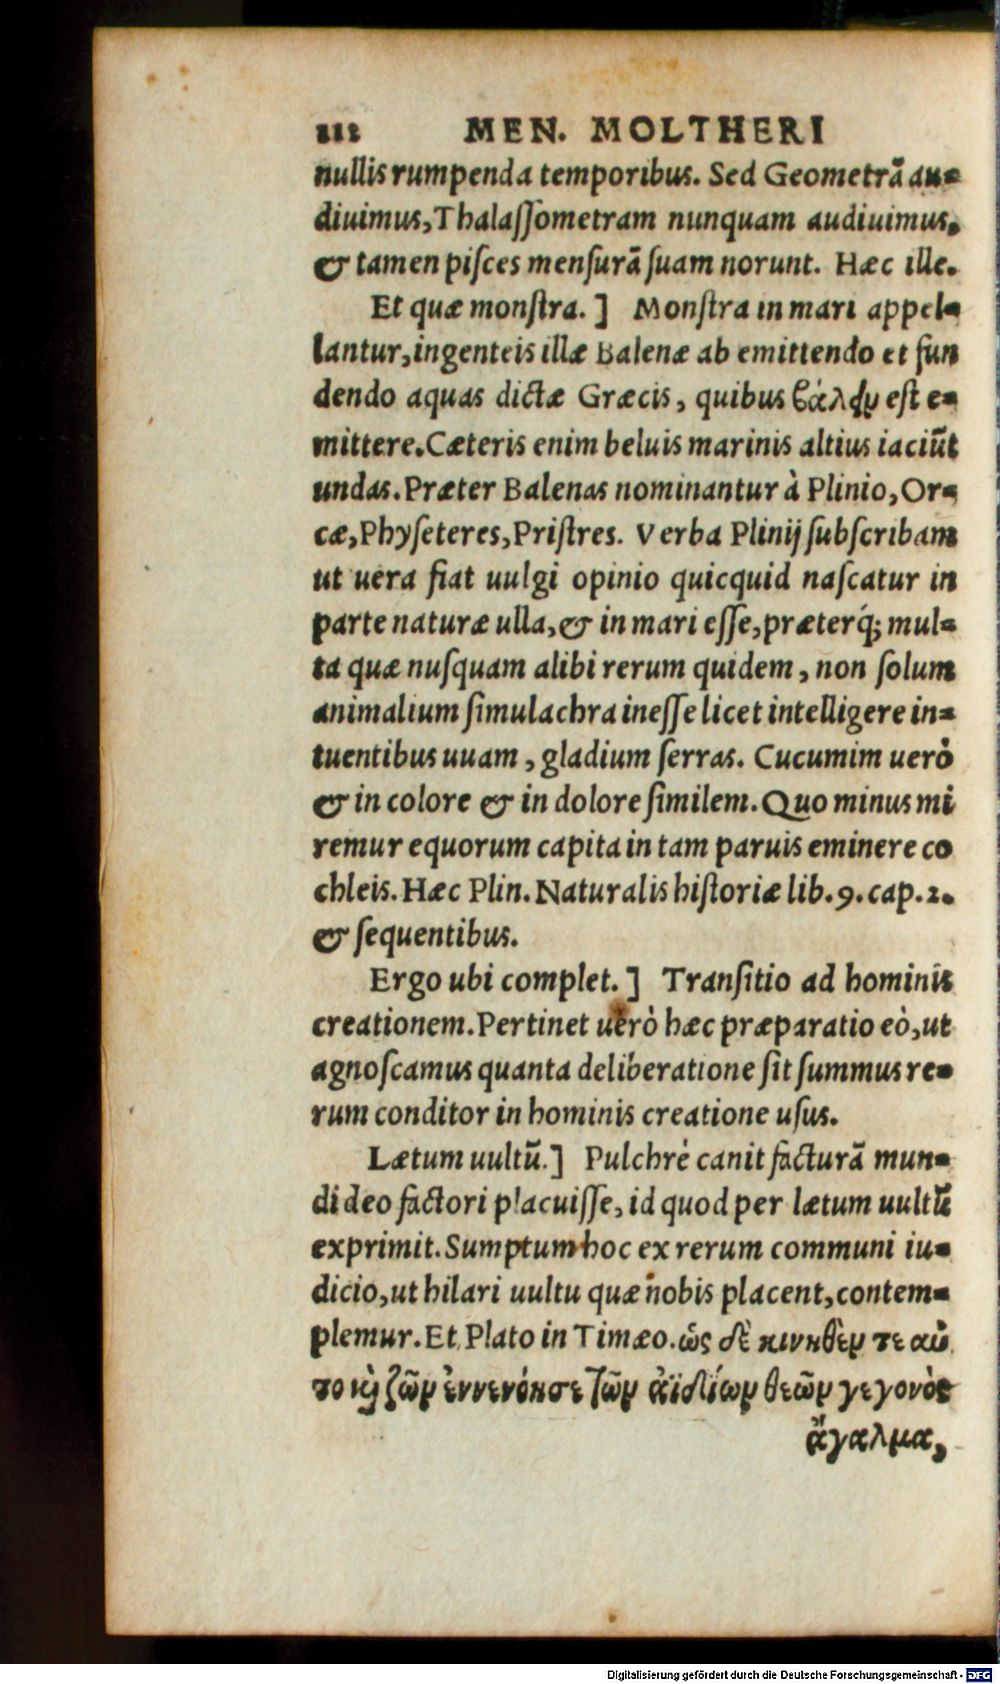 112 MEN. MOLTHERI
nullis rumpenda temporibus. Sed Geometrā au-
diuimus, Thalaſſometram nunquam audiuimus,
& tamen piſces menſurā ſuam norunt. Hæc ille.
Et quæ monſtra.] Monſtra in mari appel-
lantur, ingenteis illæ Balenæ ab emittendo et fun
dendo aquas dictæ Græcis, quibus βάλειν eſt e-
mittere. Cæteris enim beluis marinis altius iaciūt
undas. Præter Balenas nominantur à Plinio, Or-
cæ, Phyſeteres, Priſtres. Verba Plinij ſubſcribam
ut uera fiat uulgi opinio quicquid naſcatur in
parte naturæ ulla, & in mari eſſe, præterq́; mul-
ta quæ nuſquam alibi rerum quidem, non ſolum
animalium ſimulachra ineſſe licet intelligere in-
tuentibus uuam, gladium ſerras. Cucumim uerò
& in colore & in dolore ſimilem. Quo minus mi
remur equorum capita in tam paruis eminere co
chleis. Hæc Plin. Naturalis hiſtoriæ lib. 9. cap. 2.
& ſequentibus.
Ergo ubi complet.] Tranſitio ad hominis
creationem. Pertinet uerò hæc præparatio eò, ut
agnoſcamus quanta deliberatione ſit ſummus re-
rum conditor in hominis creatione uſus.
Lætum uultū.] Pulchrè canit facturā mun-
di deo factori placuiſſe, id quod per lætum uultū
exprimit. Sumptum hoc ex rerum communi iu-
dicio, ut hilari uultu quæ nobis placent, contem-
plemur. Et Plato in Timæo. ὡς δὲ κινηθὲν τε αὐ
το καὶ ζῶν ἐννενόησε τῶν ἀϊδίων θεῶν γεγονὸς
ἄγαλμα,
Digitalisierung gefördert durch die Deutsche Forschungsgemeinschaft - DFG